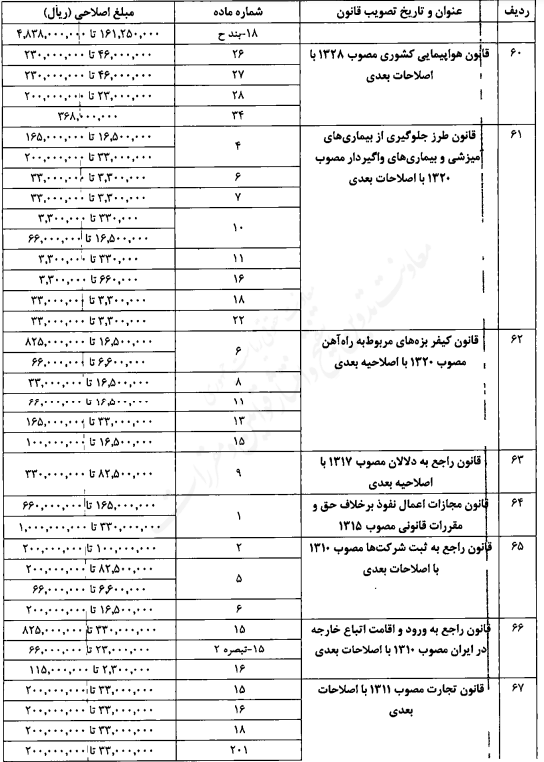 ردیف	عنوان و تاریخ تصویب قانون	شماره ماده	مبلغ اصلاحی (ریال)
۱۸-بند ح	۱۶۱,۲۵۰,۰۰۰ تا ۴,۸۳۸,۰۰۰,۰۰۰
۶۰	قانون هواپیمایی کشوری مصوب ۱۳۲۸ با	۲۶	۴۶,۰۰۰,۰۰۰ تا ۲۳۰,۰۰۰,۰۰۰
اصلاحات بعدی	۲۷	۴۶,۰۰۰,۰۰۰ تا ۲۳۰,۰۰۰,۰۰۰
۲۸	۲۳,۰۰۰,۰۰۰ تا ۲۰۰,۰۰۰,۰۰۰
۳۴	۳۶۸,۰۰۰,۰۰۰
۶۱	قانون طرز جلوگیری از بیماری‌های	۴	۱۶,۵۰۰,۰۰۰ تا ۱۶۵,۰۰۰,۰۰۰
آمیزشی و بیماری‌های واگیردار مصوب	۳۳,۰۰۰,۰۰۰ تا ۲۰۰,۰۰۰,۰۰۰
۱۳۲۰ با اصلاحات بعدی	۶	۳,۳۰۰,۰۰۰ تا ۳۳,۰۰۰,۰۰۰
۷	۳,۳۰۰,۰۰۰ تا ۳۳,۰۰۰,۰۰۰
۱۰	۳۳۰,۰۰۰ تا ۳,۳۰۰,۰۰۰
۱۶,۵۰۰,۰۰۰ تا ۶۶,۰۰۰,۰۰۰
۱۱	۳۳۰,۰۰۰ تا ۳,۳۰۰,۰۰۰
۱۶	۶۶۰,۰۰۰ تا ۳,۳۰۰,۰۰۰
۱۸	۳,۳۰۰,۰۰۰ تا ۳۳,۰۰۰,۰۰۰
۲۲	۳,۳۰۰,۰۰۰ تا ۳۳,۰۰۰,۰۰۰
۶۲	قانون کیفر بزه‌های مربوط‌به راه‌آهن	۶	۱۶,۵۰۰,۰۰۰ تا ۸۲۵,۰۰۰,۰۰۰
مصوب ۱۳۲۰ با اصلاحیه بعدی	۶,۶۰۰,۰۰۰ تا ۶۶,۰۰۰,۰۰۰
۸	۱۶,۵۰۰,۰۰۰ تا ۳۳,۰۰۰,۰۰۰
۱۱	۱۶,۵۰۰,۰۰۰ تا ۶۶,۰۰۰,۰۰۰
۱۳	۳۳,۰۰۰,۰۰۰ تا ۱۶۵,۰۰۰,۰۰۰
۱۵	۱۶,۵۰۰,۰۰۰ تا ۱۰۰,۰۰۰,۰۰۰
۶۳	قانون راجع به دلالان مصوب ۱۳۱۷ با	۹	۸۲,۵۰۰,۰۰۰ تا ۳۳۰,۰۰۰,۰۰۰
اصلاحیه بعدی
۶۴	قانون مجازات اعمال نفوذ برخلاف حق و	۱	۱۶۵,۰۰۰,۰۰۰ تا ۶۶۰,۰۰۰,۰۰۰
مقررات قانونی مصوب ۱۳۱۵	۳۳۰,۰۰۰,۰۰۰ تا ۱,۰۰۰,۰۰۰,۰۰۰
۶۵	قانون راجع به ثبت شرکت‌ها مصوب ۱۳۱۰	۲	۱۰۰,۰۰۰,۰۰۰ تا ۲۰۰,۰۰۰,۰۰۰
با اصلاحات بعدی	۵	۸۲,۵۰۰,۰۰۰ تا ۲۰۰,۰۰۰,۰۰۰
۶,۶۰۰,۰۰۰ تا ۶۶,۰۰۰,۰۰۰
۶	۱۶,۵۰۰,۰۰۰ تا ۲۰۰,۰۰۰,۰۰۰
۶۶	قانون راجع به ورود و اقامت اتباع خارجه	۱۵	۳۳۰,۰۰۰,۰۰۰ تا ۸۲۵,۰۰۰,۰۰۰
در ایران مصوب ۱۳۱۰ با اصلاحات بعدی	۱۵-تبصره ۲	۲۳,۰۰۰,۰۰۰ تا ۶۶,۰۰۰,۰۰۰
۱۶	۲,۳۰۰,۰۰۰ تا ۱۱۵,۰۰۰,۰۰۰
۶۷	قانون تجارت مصوب ۱۳۱۱ با اصلاحات	۱۵	۳۳,۰۰۰,۰۰۰ تا ۲۰۰,۰۰۰,۰۰۰
بعدی	۱۶	۳۳,۰۰۰,۰۰۰ تا ۲۰۰,۰۰۰,۰۰۰
۱۸	۳۳,۰۰۰,۰۰۰ تا ۲۰۰,۰۰۰,۰۰۰
۲۰۱	۳۳,۰۰۰,۰۰۰ تا ۲۰۰,۰۰۰,۰۰۰